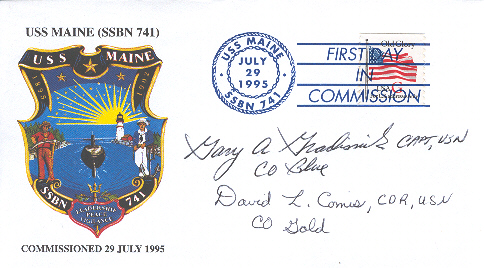 USS MAINE (SSBN 741)
USS MAINE
SSBN 741
LEADERSHIP
PEACE
VIGILANCE
COMMISSIONED 29 JULY 1995
USS MAINE
JULY
29
1995
SSBN 741
FIRST DAY
IN
COMMISSION
Old Glory
USA G
Gary A CAPT, USN
CO Blue
David L. Comis, CDR, USN
CO Gold